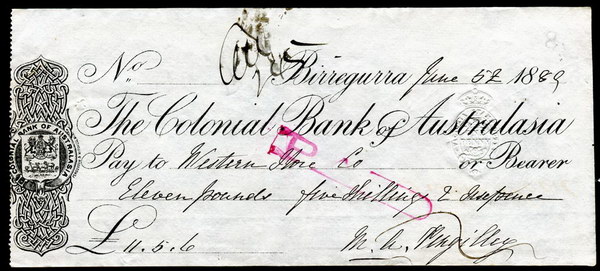 No Birregurra June 5th 1889
The Colonial Bank of Australasia
Pay to Western Store Co or Bearer
Eleven pounds five shillings & sixpence
£ 11.5.6 M. A.